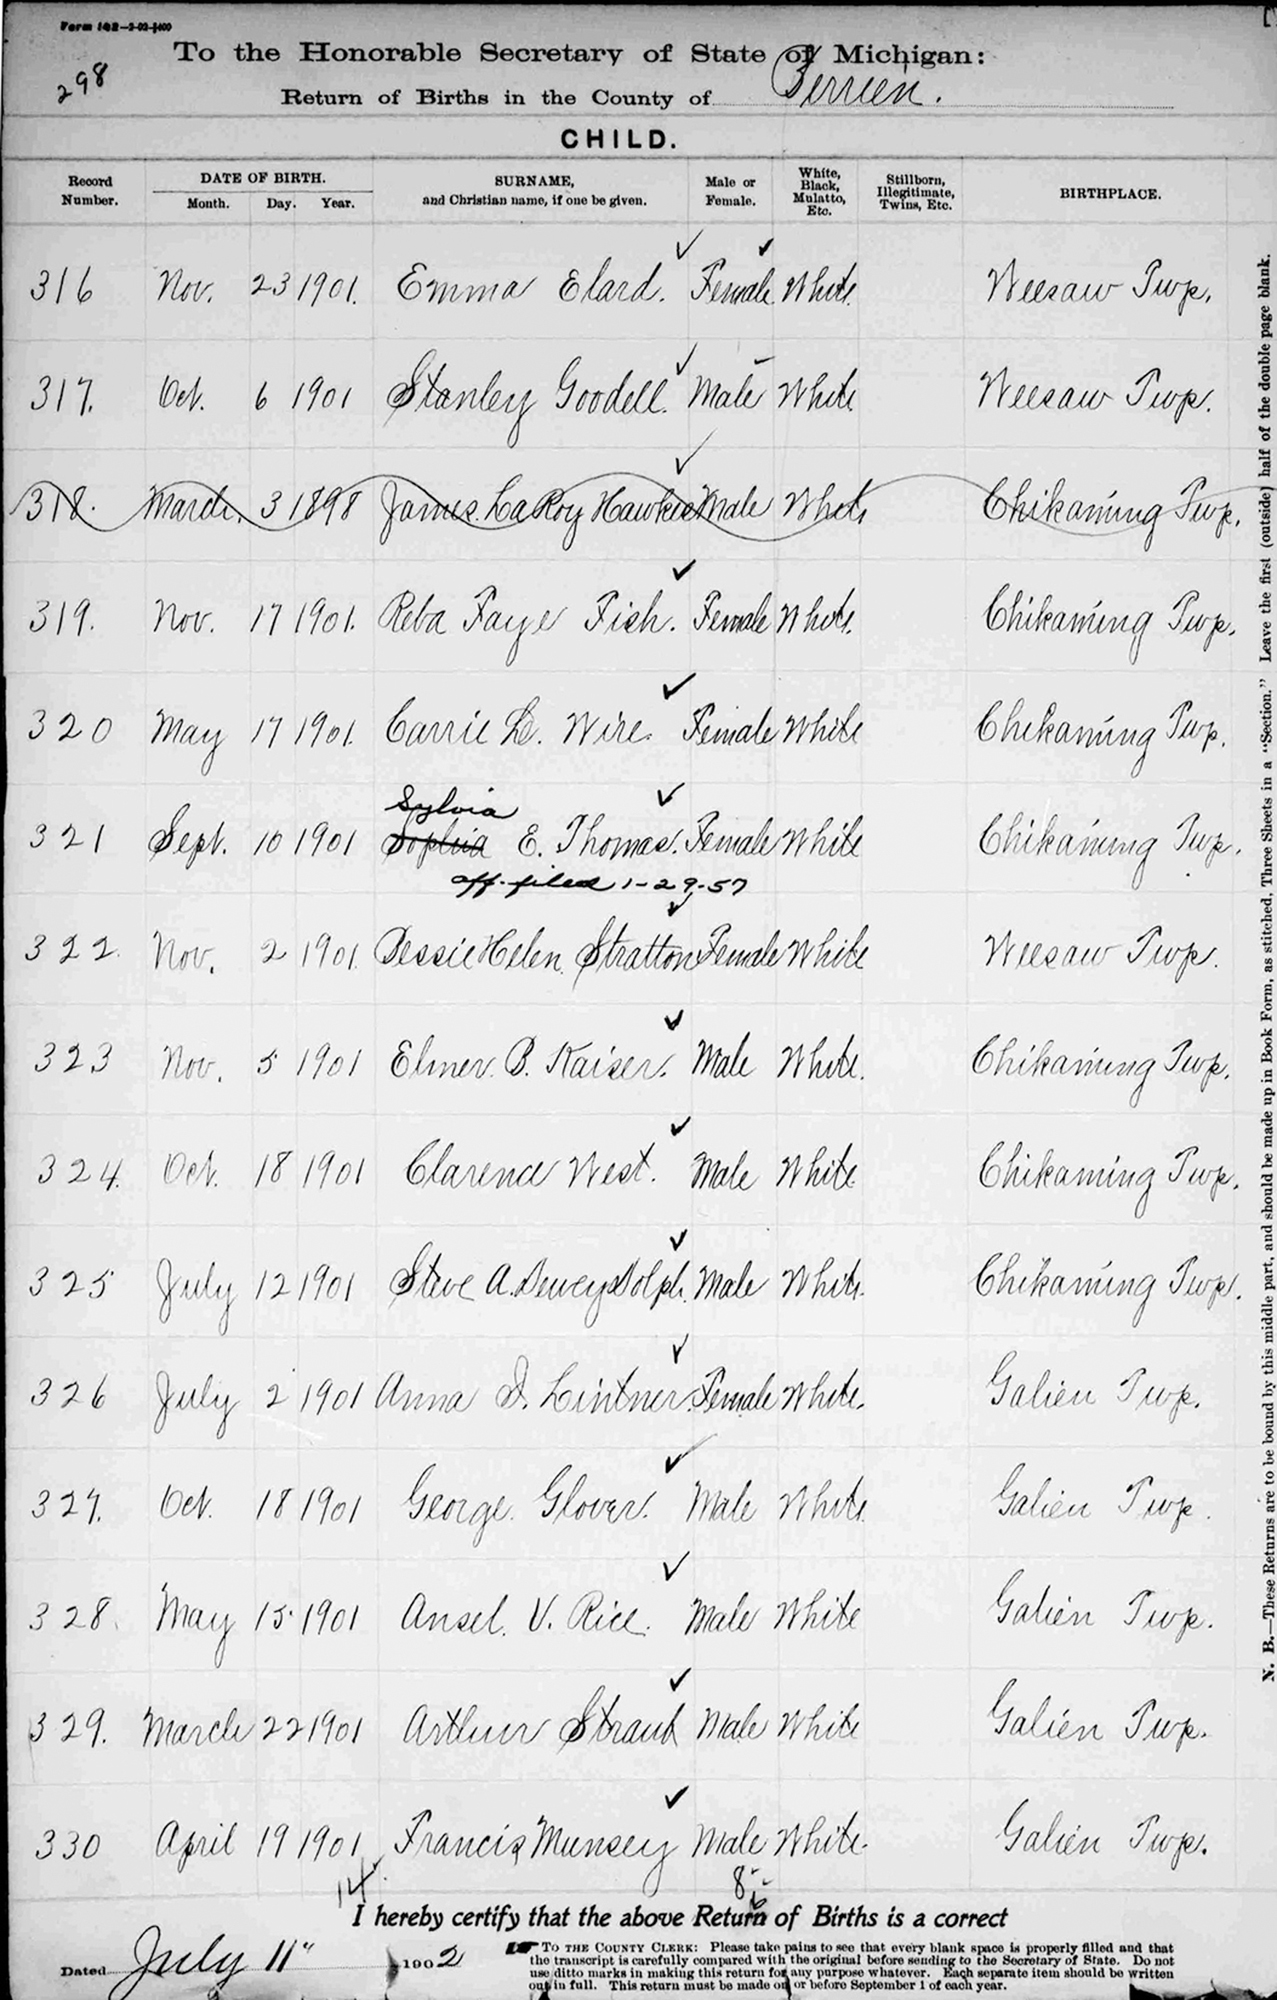 Form 102-2-02-1400
To the Honorable Secretary of State of Michigan:
298
Return of Births in the County of Berrien.
CHILD.
Record Number. DATE OF BIRTH. Month. Day. Year. SURNAME, and Christian name, if one be given. Male or Female. White, Black, Mulatto, Etc. Stillborn, Illegitimate, Twins, Etc. BIRTHPLACE.
316 Nov. 23 1901. Emma Elard. Female White Weesaw Twp.
317. Oct. 6 1901 Stanley Goodell. Male White Weesaw Twp.
318. March. 3 1898 James LaRoy Hawkes Male White Chikaming Twp.
319. Nov. 17 1901. Reba Faye Fish. Female White. Chikaming Twp.
320 May 17 1901. Carrie L. Wire. Female White Chikaming Twp.
Sylvia
321 Sept. 10 1901 Sophia E. Thomas. Female White Chikaming Twp.
aff. filed 1-29-57
322. Nov. 2 1901. Bessie Helen Stratton Female White Weesaw Twp.
323 Nov. 5 1901 Elmer B. Kaiser. Male White. Chikaming Twp.
324. Oct. 18 1901 Clarence West. Male White Chikaming Twp.
325 July 12 1901 Steve A. Dewey Dolph. Male White. Chikaming Twp.
326 July 2 1901 Anna I. Lintner. Female White. Galien Twp.
327. Oct. 18 1901 George Glover. Male White Galien Twp.
328. May 15 1901 Ansel V. Rice. Male White Galien Twp.
329. March 22 1901 Arthur Straub Male White Galien Twp.
330 April 19 1901 Francis Munsey Male White. Galien Twp.
14 8 6
I hereby certify that the above Return of Births is a correct
Dated July 11" 1902
TO THE COUNTY CLERK: Please take pains to see that every blank space is properly filled and that
the transcript is carefully compared with the original before sending to the Secretary of State. Do not
use ditto marks in making this return for any purpose whatever. Each separate item should be written
out in full. This return must be made on or before September 1 of each year.
N. B.—These Returns are to be bound by this middle part, and should be made up in Book Form, as stitched, Three Sheets in a "Section." Leave the first (outside) half of the double page blank.